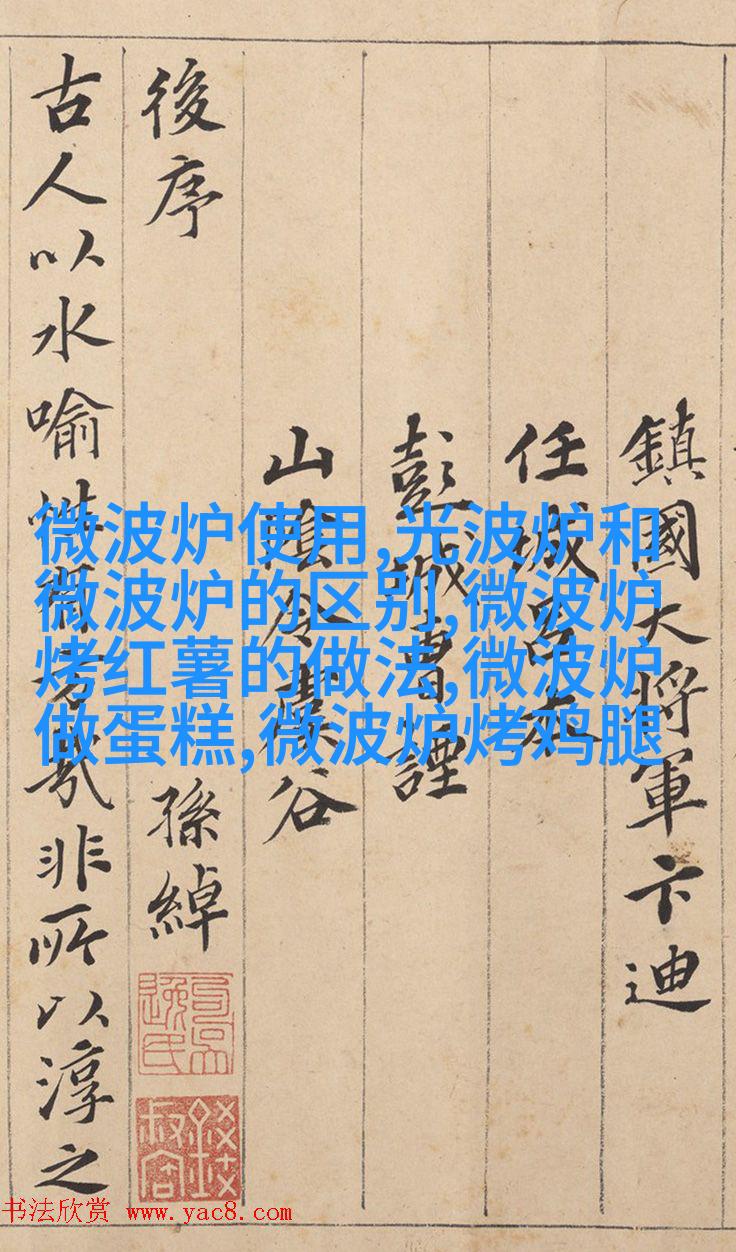 鎮國大将軍卞迪
任城呂本
彭城曹諲
山陰令虞谷
後序
孫綽
古人以水喻性有旨哉非所以淳之
微波炉使用,光波炉和
微波炉的区别,微波炉
烤红薯的做法,微波炉
做蛋糕,微波炉烤鸡腿
书法欣赏 www.yac8.com